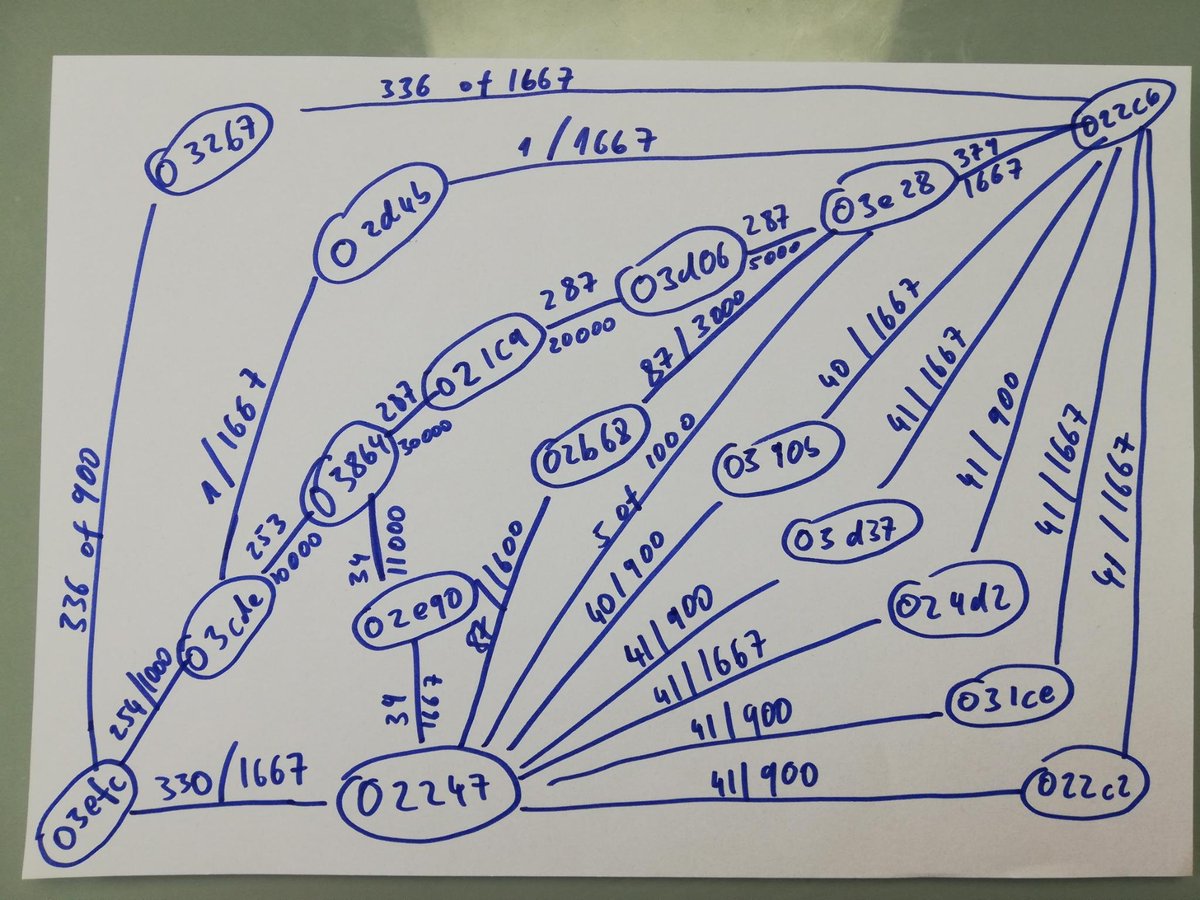 336 of 1667
022c6
03267
1/1667
02d4b
379
1667
03e28
287
5000
03d06
287
20000
021c9
87/3000
40/1667
41/1667
41/900
41/1667
41/1667
287
30000
03864
02b68
03905
5 of 1000
1/1667
336 of 900
253
10000
34
11000
03d37
024d2
03cde
02e90
87/1600
40/900
41/900
41/1667
031ce
254/1000
34
1667
41/900
03efc
330/1667
02247
41/900
022c2